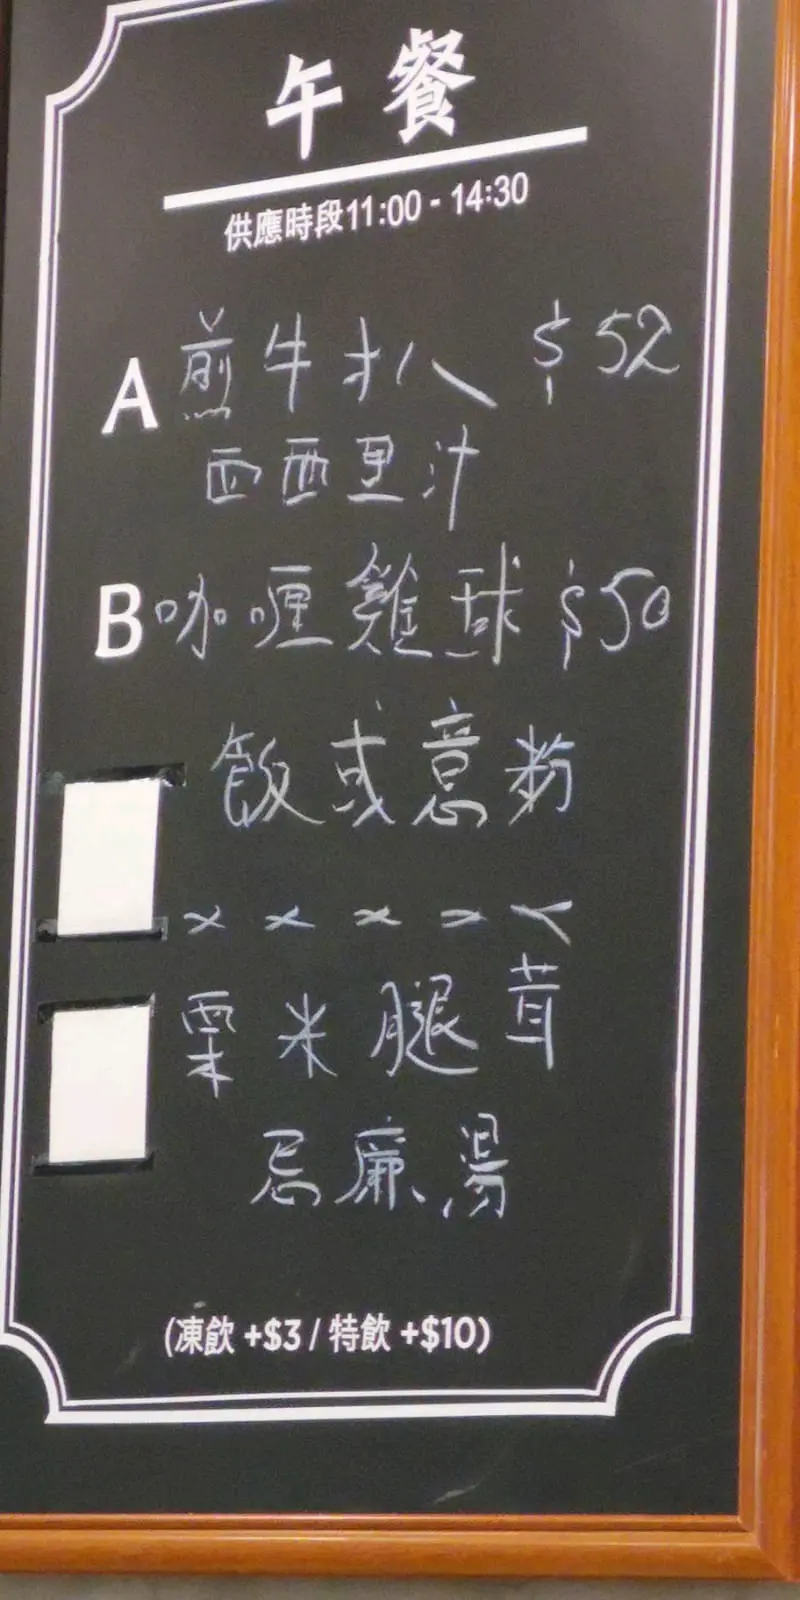 午餐
供應時段11:00 - 14:30
A 煎牛扒 $52
西西里汁
B 咖喱雞球 $50
飯或意粉
x x x x x
粟米腿茸
忌廉湯
(凍飲 +$3 / 特飲 +$10)